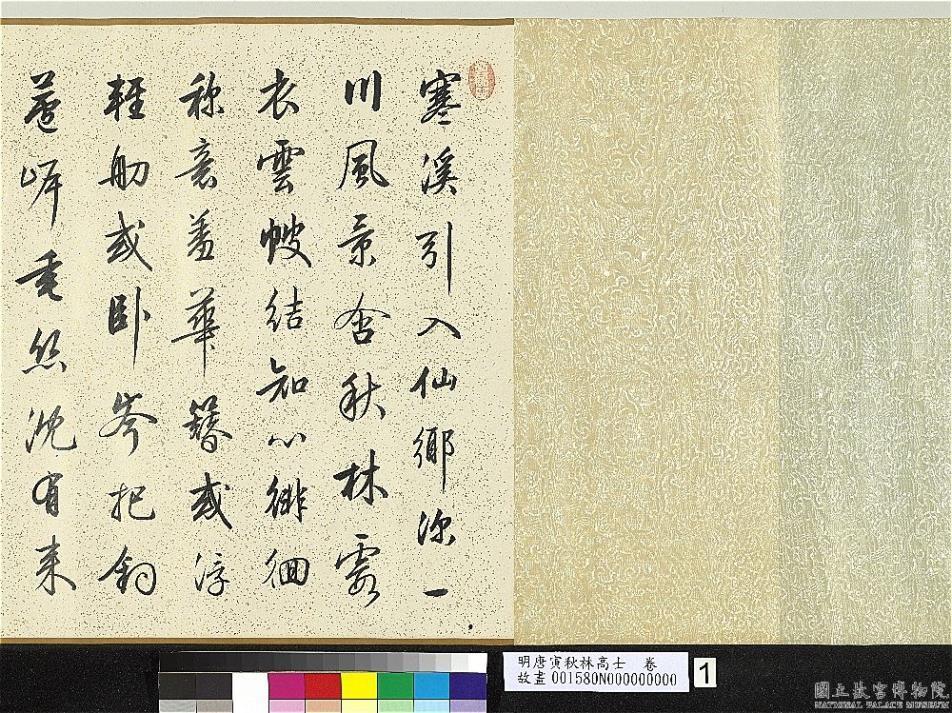 寒溪引入仙鄉深一
川風景含秋林霞
衣雲幘結知心徘徊
稱意羞華簪或浮
輕舠或卧岑把釣
蘆岸垂絲沈有來
明唐寅秋林高士 卷
故畫 001580N000000000
1
國立故宮博物院
NATIONAL PALACE MUSEUM